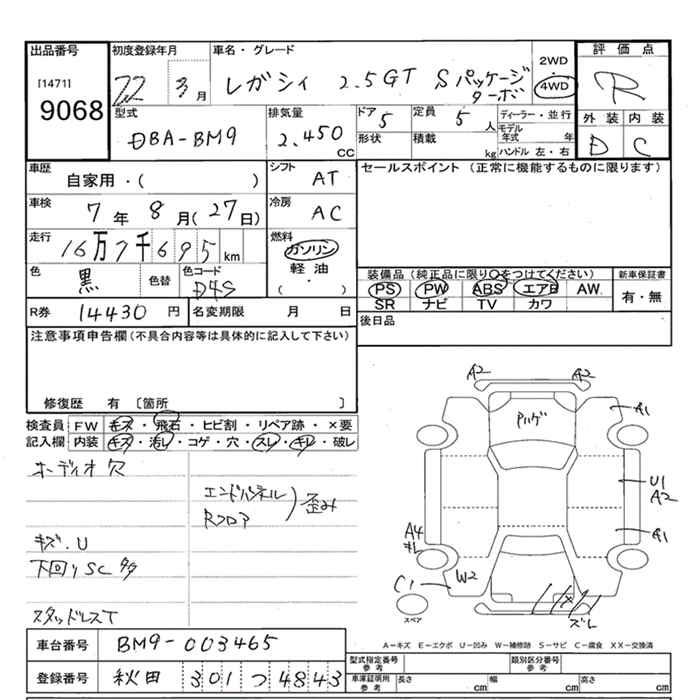 出品番号 初度登録年月 車名・グレード 2WD 評価点
[1471] 22 3月 レガシィ 2.5GT Sパッケージ 4WD R
ターボ
9068 型式 排気量 ドア 定員 ディーラー・並行 外装 内装
DBA-BM9 2.450 CC 5 5人 モデル年式 年 D C
形状 積載 kg ハンドル 左・右
車歴 シフト セールスポイント (正常に機能するものに限ります)
自家用・( ) AT
車検 7年 8月(27日) 冷房 AC
走行 16万7千695km 燃料 ガソリン
軽油
( ・ )
色 黒 色替 色コード D4S
装備品(純正品に限り○をつけてください) 新車保証書
PS PW ABS エアB AW 有・無
SR ナビ TV カワ
R券 14430円 名変期限 月 日 後日品
注意事項申告欄(不具合内容等は具体的に記入して下さい)
修復歴 有 〔箇所 〕
検査員 FW キズ・飛石・ヒビ割・リペア跡・×要
記入欄 内装 キズ・汚し・コゲ・穴・スレ・キレ・破レ
オーディオ欠
エンドパネル
Rフロア )歪み
キズ.U
下回りSC多
スタッドレスT
A2 A2
A1
U1
A2
A1
A4
キレ
W2
C1
スペア
ズレ
A-キズ E-エクボ U-凹み W-補修跡 S-サビ C-腐食 XX-交換済
車台番号 BM9-003465
型式指定番号 参考 類別区分番号 参考
登録番号 秋田 301 つ 4843
車庫証明用 参考 長さ cm 幅 cm 高さ cm